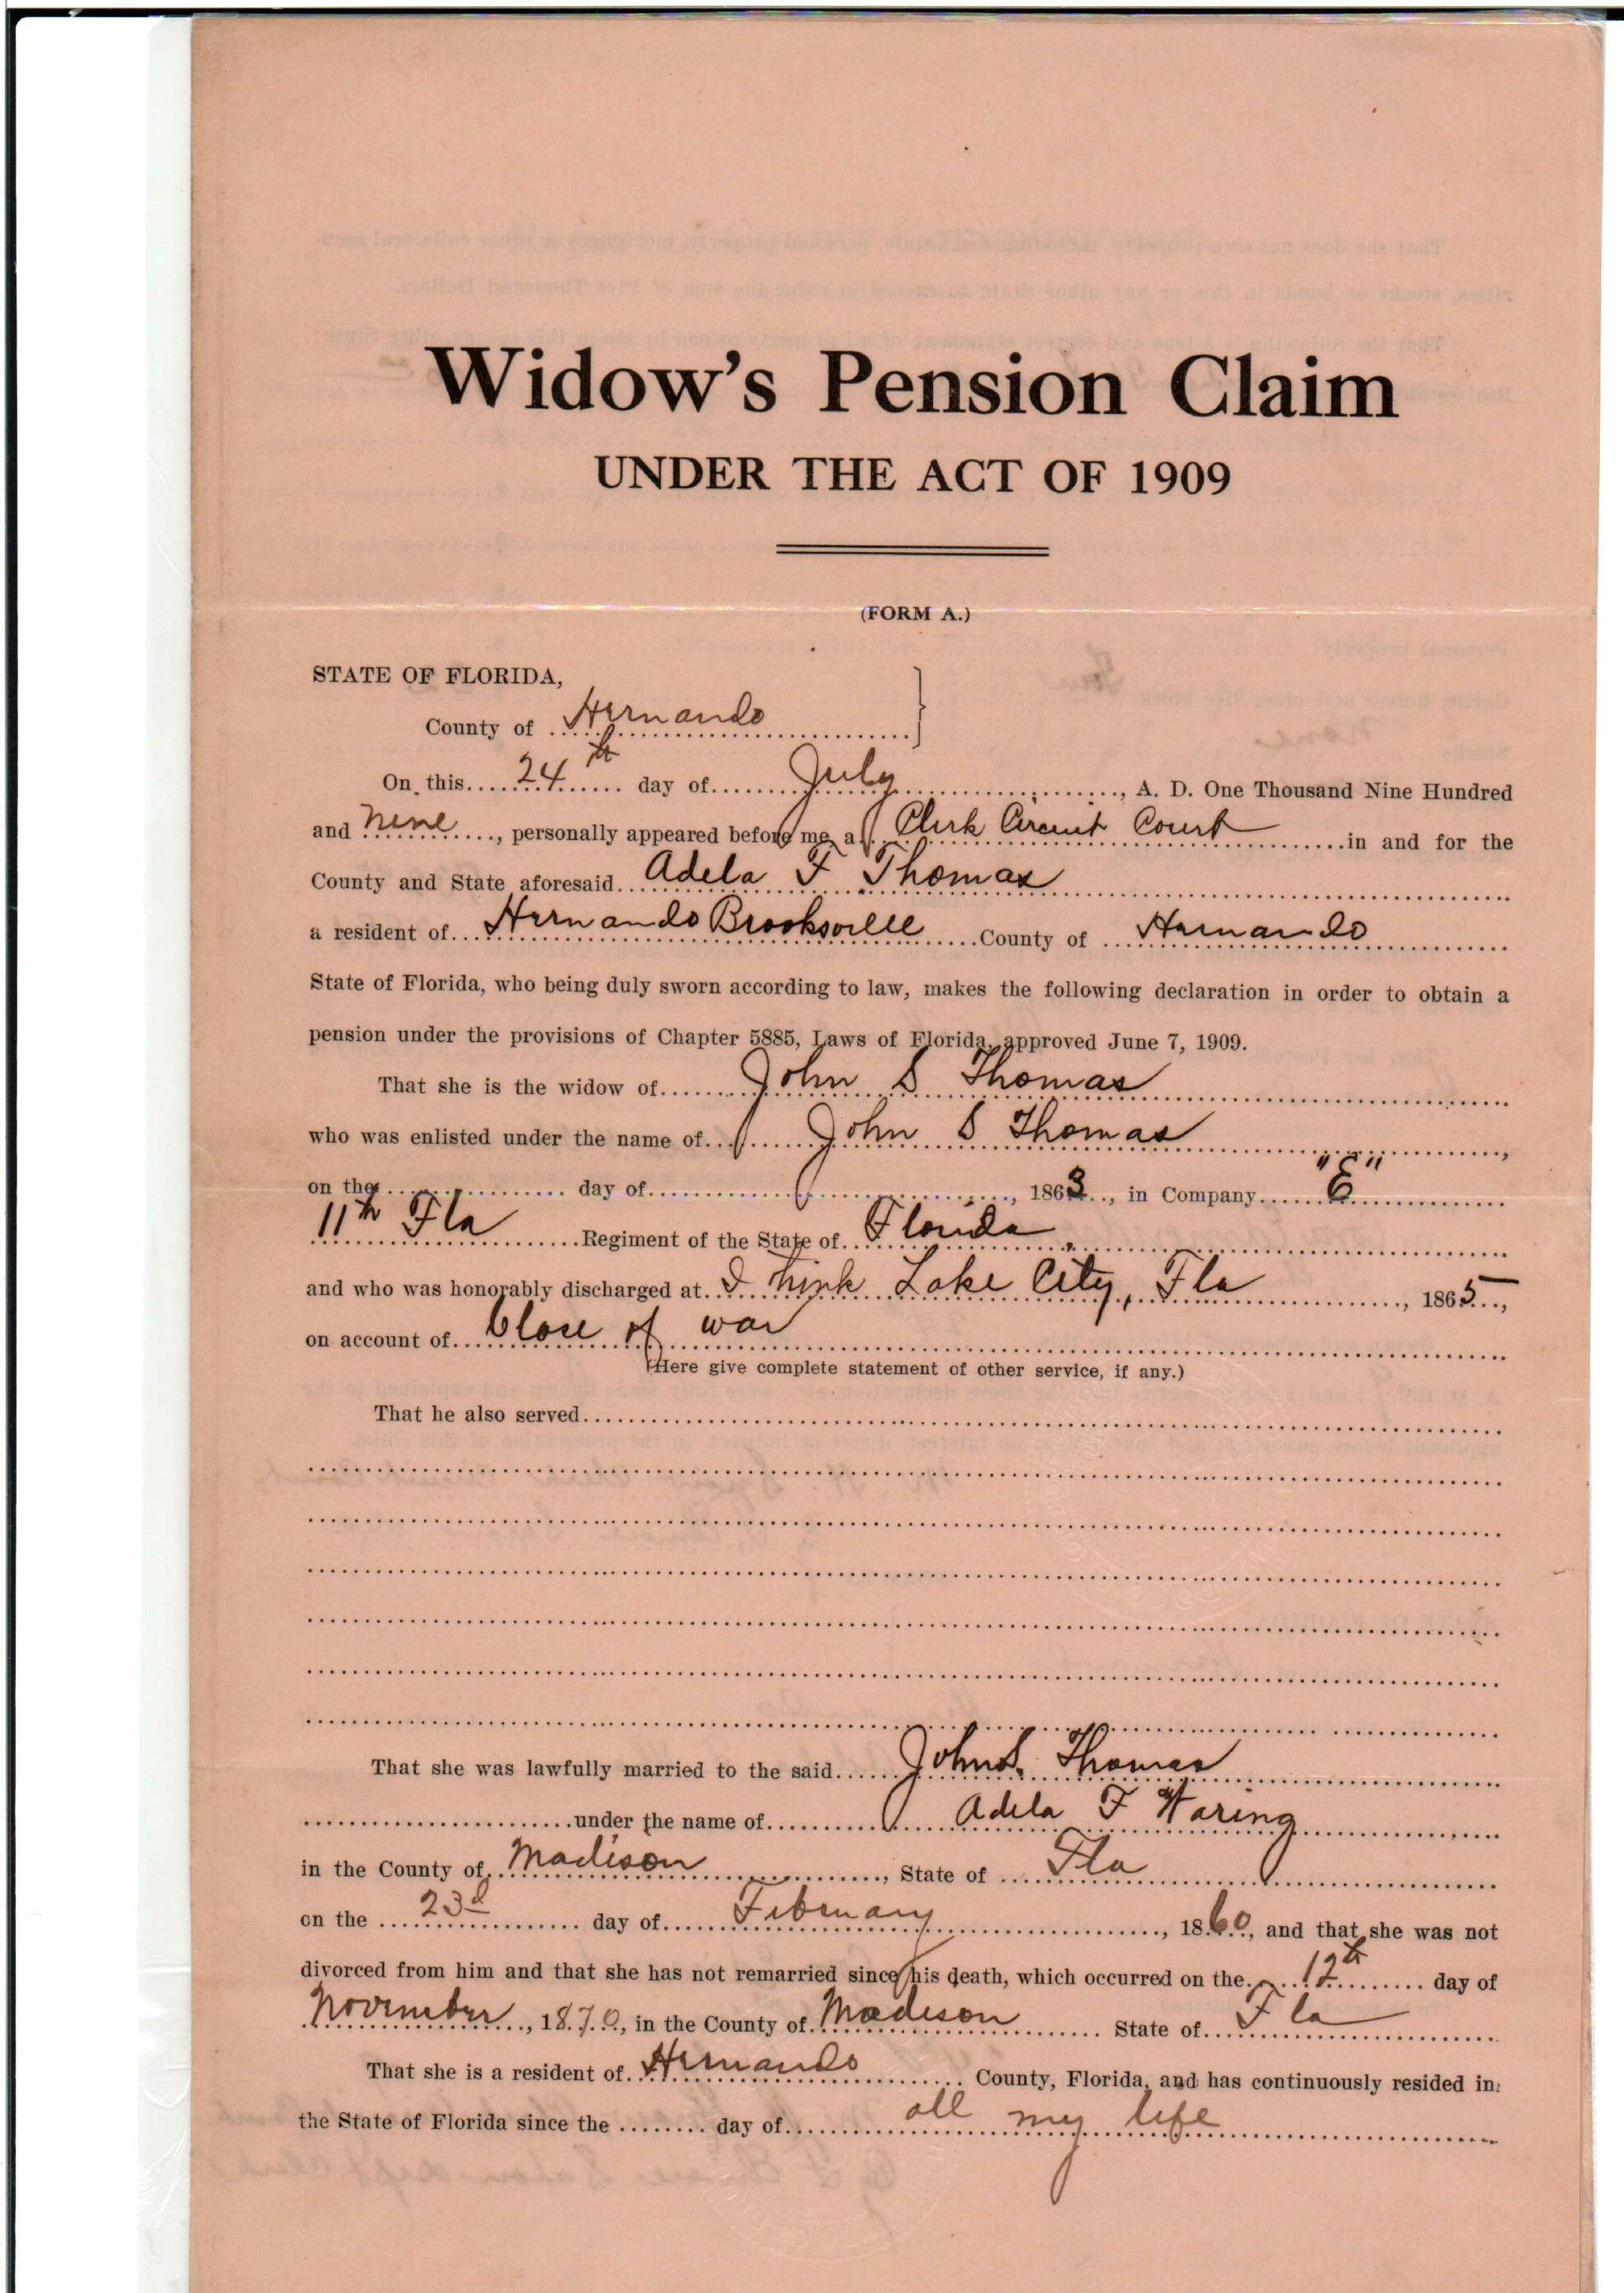 Widow's Pension Claim
UNDER THE ACT OF 1909
(FORM A.)
STATE OF FLORIDA,
County of Hernando
On this 24th day of July, A. D. One Thousand Nine Hundred
and nine, personally appeared before me, a Clerk Circuit Court in and for the
County and State aforesaid Adela F Thomas
a resident of Hernando Brooksville County of Hernando
State of Florida, who being duly sworn according to law, makes the following declaration in order to obtain a
pension under the provisions of Chapter 5885, Laws of Florida, approved June 7, 1909.
That she is the widow of John S Thomas
who was enlisted under the name of John S Thomas,
on the day of, 1863, in Company "E"
11th Fla Regiment of the State of Florida
and who was honorably discharged at I think Lake City, Fla, 1865,
on account of Close of war
(Here give complete statement of other service, if any.)
That he also served
That she was lawfully married to the said John S. Thomas
under the name of Adela F Waring
in the County of Madison, State of Fla
on the 23d day of February, 1860, and that she was not
divorced from him and that she has not remarried since his death, which occurred on the 12th day of
November, 1870, in the County of Madison State of Fla
That she is a resident of Hernando County, Florida, and has continuously resided in
the State of Florida since the day of all my life